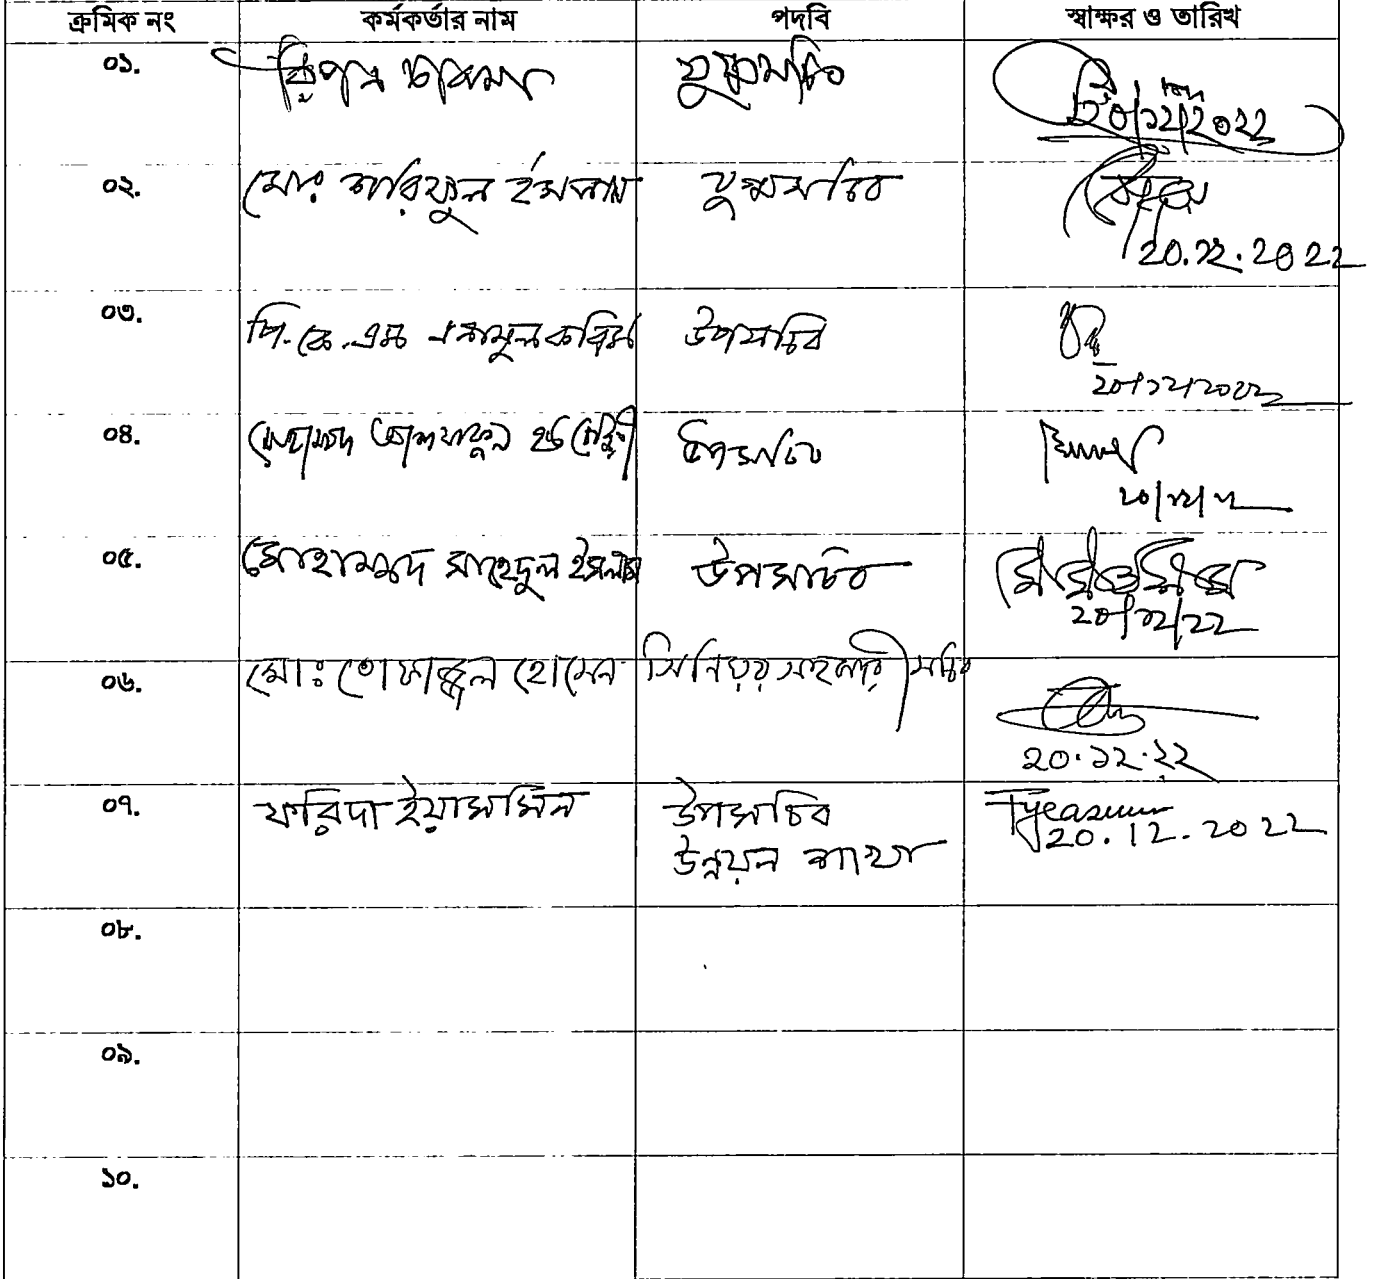 ক্রমিক নং কর্মকর্তার নাম পদবি স্বাক্ষর ও তারিখ
০১. রিপন চাকমা যুগ্মসচিব ২০/১২/২০২২
০২. মোঃ শরিফুল ইসলাম যুগ্মসচিব
২০.১২.২০২২
০৩. পি.কে.এম এনামুল করিম উপসচিব
২০/১২/২০২২
০৪. মোহাম্মদ উপসচিব
২০/১২/২২
০৫. মোহাম্মদ সাহেদুল ইসলাম উপসচিব
২০/১২/২২
০৬. মোঃ তোফাজ্জল হোসেন সিনিয়র সহকারী সচিব
২০.১২.২২
০৭. ফরিদা ইয়াসমিন উপসচিব Fyeasmin
উন্নয়ন শাখা 20.12.2022
০৮.
০৯.
১০.